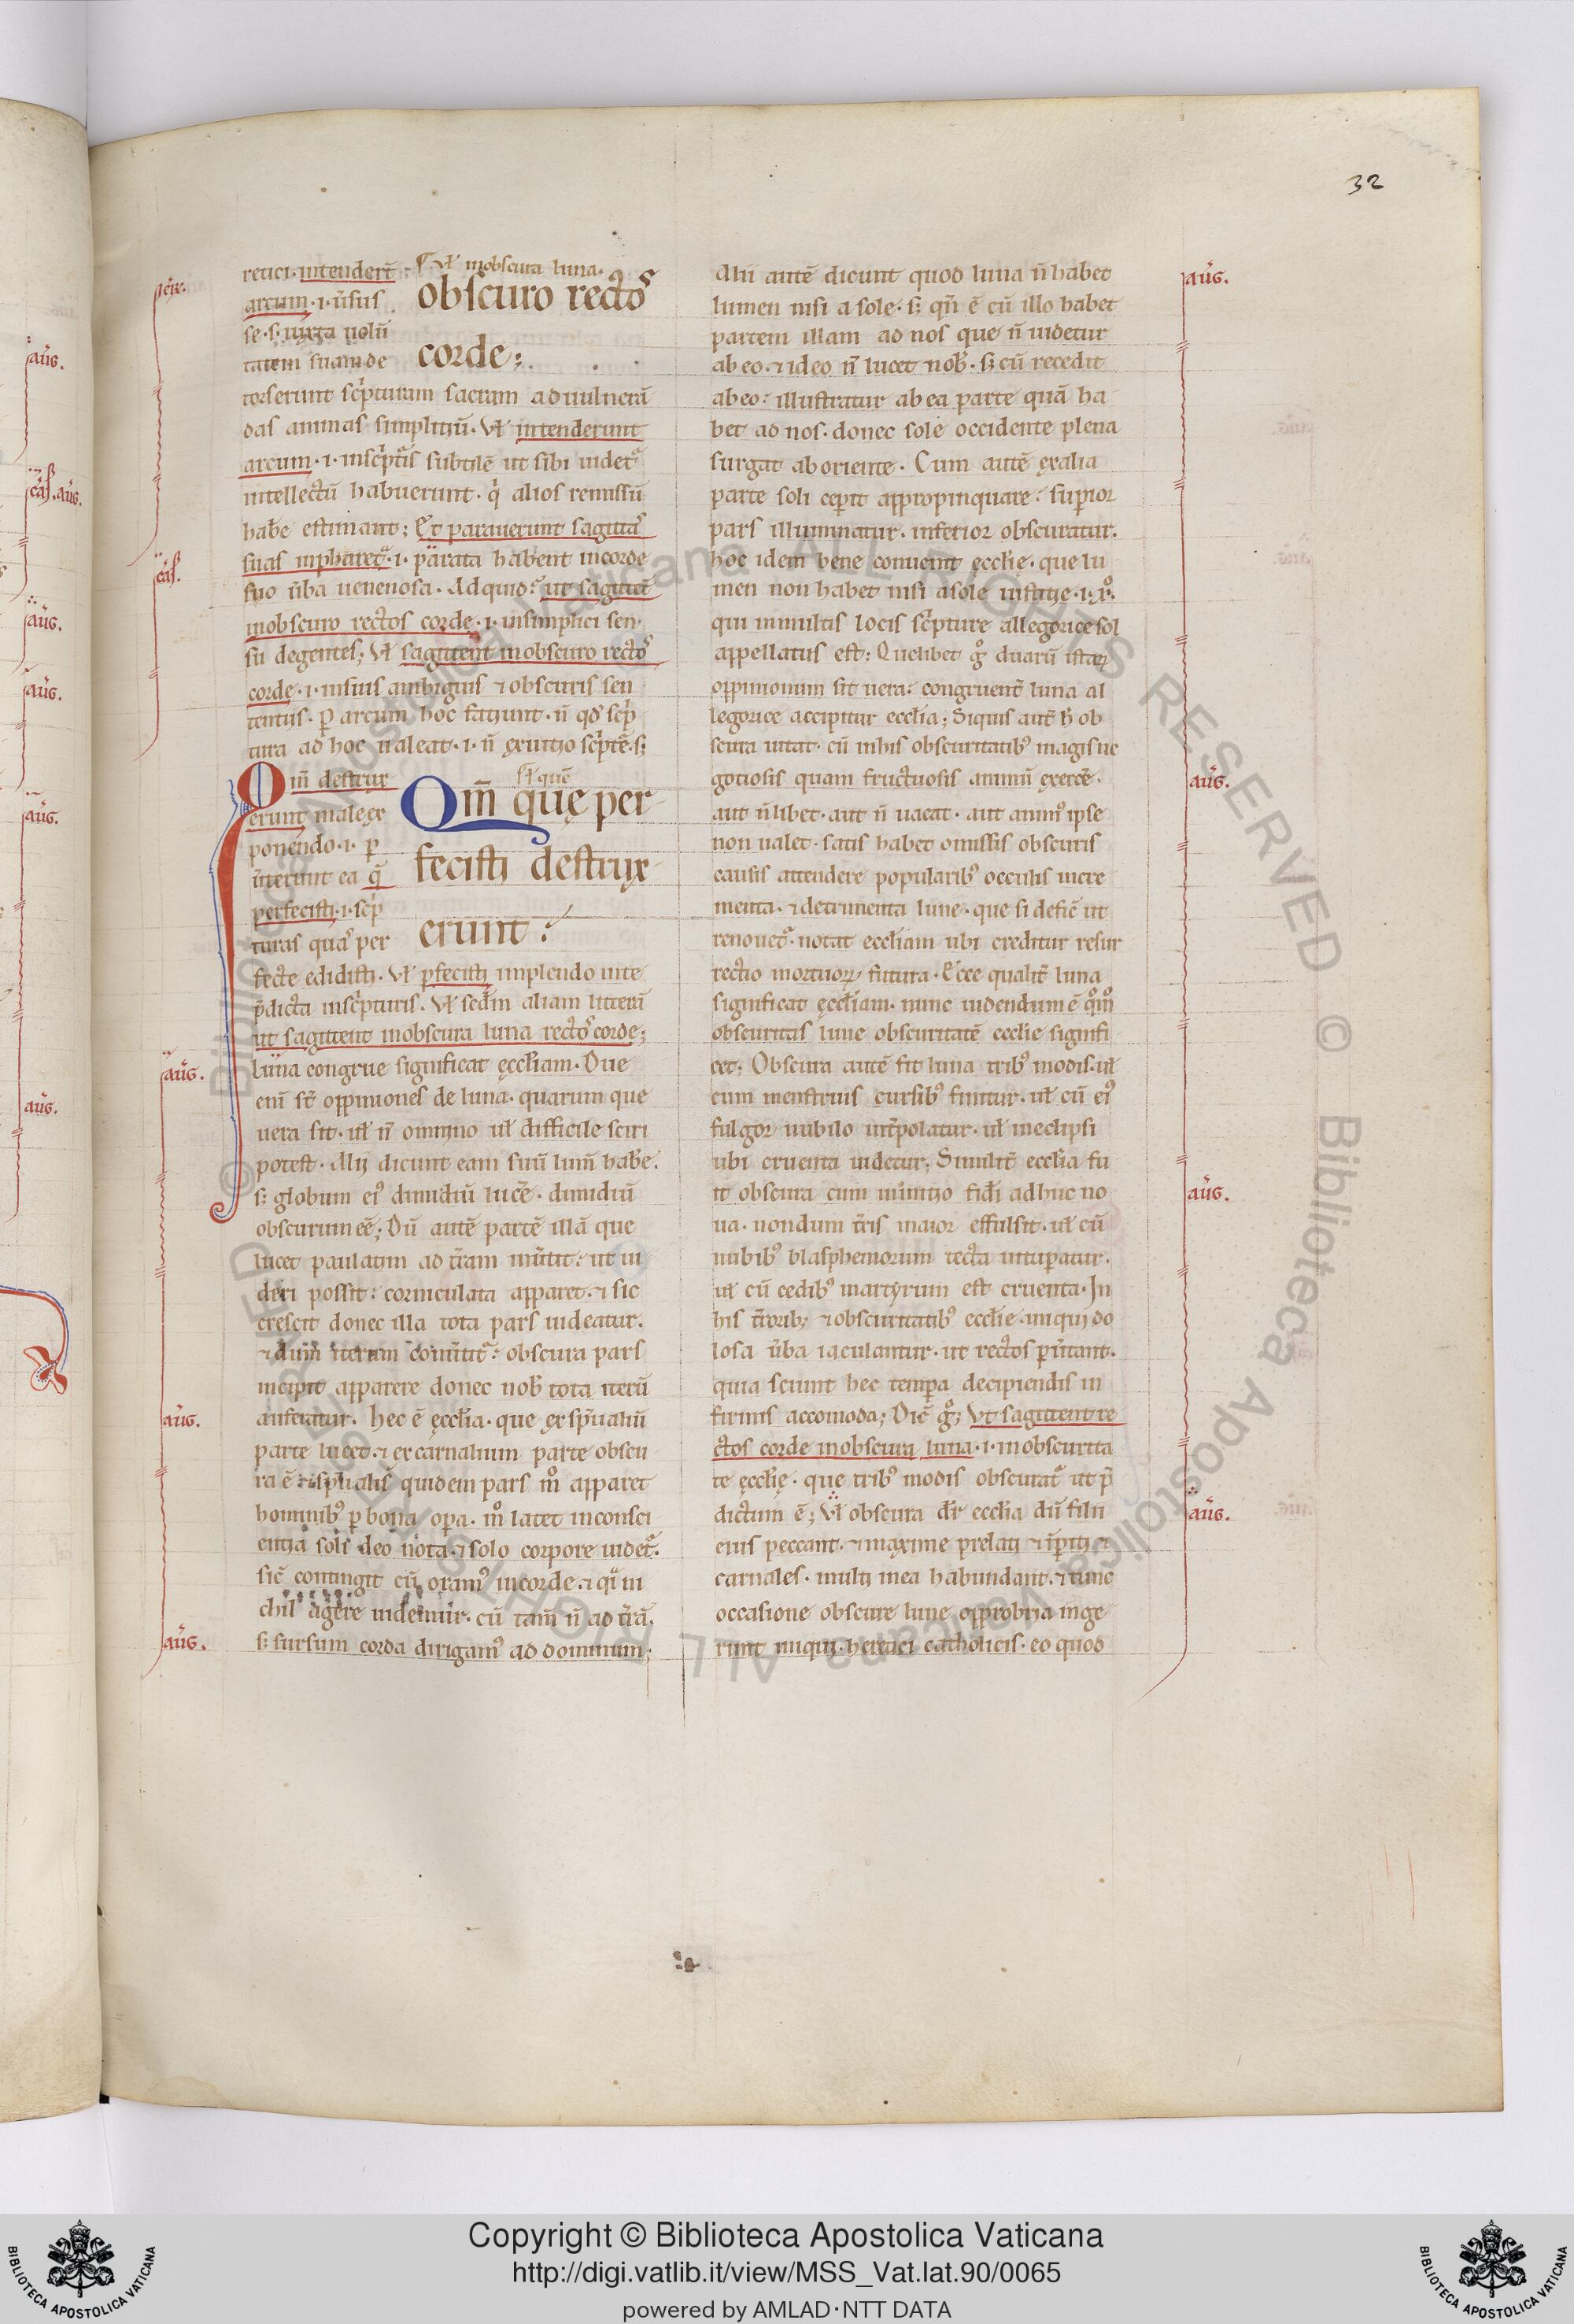 32
retici. intender̄t
arcum .i. ūsus
se .s. iuxta uolū
tatem suam de
ł inobscura luna.
obscuro rectoˢ
corde;
torserunt sc̄pturam sacram ad uulnerā
das animas simpliciū. Vł intenderunt
arcum .i. insc̄pt̄is subtilē ut sibi uidet᷑
intellectū habuerunt. q̄ alios remissū
hab̄e estimant; Et parauerunt sagittaˢ
suas inpharet᷑ .i. parata habent incorde
suo ūba uenenosa. Ad quid? ut sagittēt
inobscuro rectos corde .i. insimplici sen
su degentes; Vł sagittent inobscuro rectoˢ
corde .i. insuis ambiguis ⁊ obscuris sen
tentijs. ꝑ arcum hoc faciunt. n̄ qd̄ sc̄p
tura ad hoc ualeat .i. n̄ ex uitio sc̄pt̄e .s;
Qm̄ destrux
erunt male ex
ponendo .i. ꝑ
ūterunt ea q̄
perfecisti .i. sc̄p
turas quaˢ per
ł quē
Qm̄ quę per
fecisti destrux
erunt:
fecte edidisti. Vł ꝑfecisti implendo in te
p̄dicta insc̄pturis. Vł scd̄m aliam litterā
ut sagittent inobscura luna rectoˢ corde;
luna congrue significat ęccłiam. Due
enī st̄ oppiniones de luna. quarum que
uera sit. uł n̄ omnino uł difficile sciri
potest. Alij dicunt eam suū lum̄ habe.
s; globum eiꝰ dimidiū lucē. dimidiū
obscurum eē; Dū autē partē illā que
lucet paulatim ad t̄ram ūtit: ut ui
deri possit: corniculata apparet. ⁊ sic
crescit donec illa tota pars uideatur.
⁊ dum iterum conūtit᷑: obscura pars
incipit apparere donec nob̄ tota iterū
auferatur. Hec ē ęccłia. que ex sp̄ualiū
parte lucet. ⁊ ex carnalium parte obscu
ra ē. ⁊ sp̄ualis quidem pars m̊ apparet
hominibꝰ ꝑ bona oꝑa. m̊ latet inconsci
entia solˢ deo nota. ⁊ solo corpore uidet᷑.
sic̄ contingit cū oramꝰ incorde. ⁊ q̄i ni
chil agere uidemur. cū tam̄ n̄ ad t̄rā.
s; sursum corda dirigamꝰ ad dominum;
Alii autē dicunt quod luna n̄ habet
lumen nisi a sole. s; qn̄ ē cū illo habet
partem illam ad nos que n̄ uidetur
ab eo. ⁊ ideo n̄ lucet nob̄. s; cū recedit
ab eo: illustratur ab ea parte quā ha
bet ad nos. donec sole occidente plena
surgat ab oriente. Cum autē ex alia
parte soli ceꝑit appropinquare: suꝑior
pars illuminatur. inferior obscuratur.
hoc idem bene conuenit ęccłie. que lu
men non habet nisi a sole iustitie .i. x̊.
qui inmultis locis sc̄pture allegorice sol
appellatus est: Quelibet g̊ duarū istaꝝ
oppinionum sit uera: congruent̄ luna al
legorice accipitur eccłia; Siquis aut̄ h̄ ob
scura uitat. cū inhis obscuritatibꝰ magis ne
gotiosis quam fructuosis animū exercē.
aut n̄ libet. aut n̄ uacat. aut animꝰ ipse
non ualet. satis habet omissis obscuris
causis attendere popularibꝰ oculis incre
menta. ⁊ detrimenta lune. que si defic̄ ut
renouet᷑. notat eccłiam ubi creditur resur
rectio mortuoꝝ futura. Ecce qualit̄ luna
significat ęccłiam. nunc uidendum ē q̊m̊
obscuritas lune obscuritatē eccłie signifi
cet; Obscura autē fit luna tribꝰ modis. uł
cum menstruis cursibꝰ finitur. uł cū eiꝰ
fulgor nubilo int̄polatur. uł ineclipsi
ubi cruenta uidetur; Similit̄ eccłia fu
it obscura cum in initio fidei adhuc no
ua. nondum t̄ris maior effulsit. uł cū
nubibꝰ blasphemorum tecta uituꝑatur.
uł cū cedibꝰ martyrum est cruenta. In
his t̄roribꝫ ⁊ obscuritatibꝰ eccłie. iniqui do
losa ūba iaculantur. ut rectos ꝑūtant.
quia sciunt hec temꝑa decipiendis in
firmis accomoda; Dic̄ g̊; Vt sagittent re
ctos corde inobscura luna .i. inobscurita
te ęccłię. que tribꝰ modis obscurat᷑ ut p̄
dictum ē; Vł obscura dr̄ eccłia dū filii
eius peccant. ⁊ maxime prelati ⁊
carnales. multi inea habundant. ⁊ tunc
occasione obscure lune opprobria inge
runt iniqui. heretici catholicis. eo quod
cas.
aug.
aug.
aug.
aug.
aug.
aug.
aug.
Copyright © Biblioteca Apostolica Vaticana
http://digi.vatlib.it/view/MSS_Vat.lat.90/0065
powered by AMLAD·NTT DATA
BIBLIOTECA APOSTOLICA VATICANA
BIBLIOTECA APOSTOLICA VATICANA